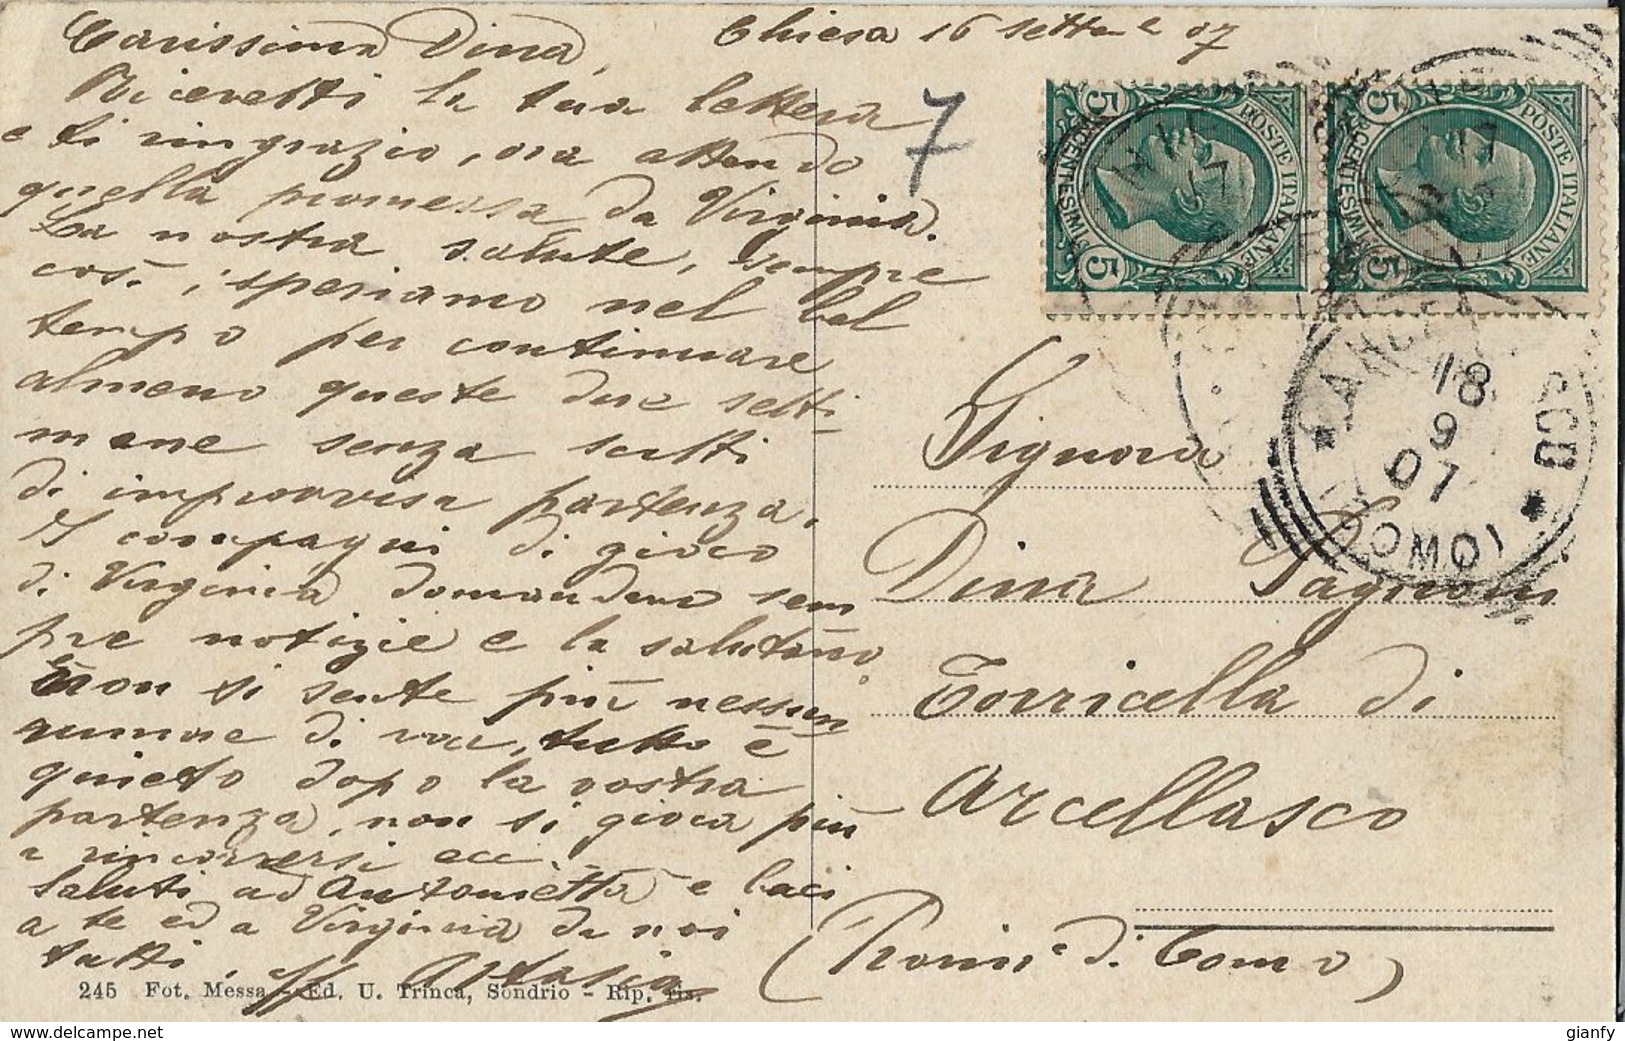 Chiesa 16 Sett.e 07
Carissima Dina,
Ricevetti la tua lettera
e ti ringrazio, ora attendo
quella promessa da Virginia.
La nostra salute, sempre
così, speriamo nel bel
tempo per continuare
almeno queste due setti
mane senza scatti
di improvvisa partenza.
I compagni di gioco
di Virginia domandano sem
pre notizie e la salutano
non si sente più nessun
rumore di voci, tutto è
quieto dopo la vostra
partenza, non si gioca più
a rincorrersi ecc
Saluti ad Antonietta e baci
a te ed a Virginia da noi
tutti.
7
POSTE ITALIANE
5
5
POSTE ITALIANE
5
5
18
9
07
COMO
Signora
Dina Pagnoni
Torricella di
Arcellasco
(Provin.a di Como)
245 Fot. Messa - Ed. U. Trinca, Sondrio - Rip. Vis.
gianfy